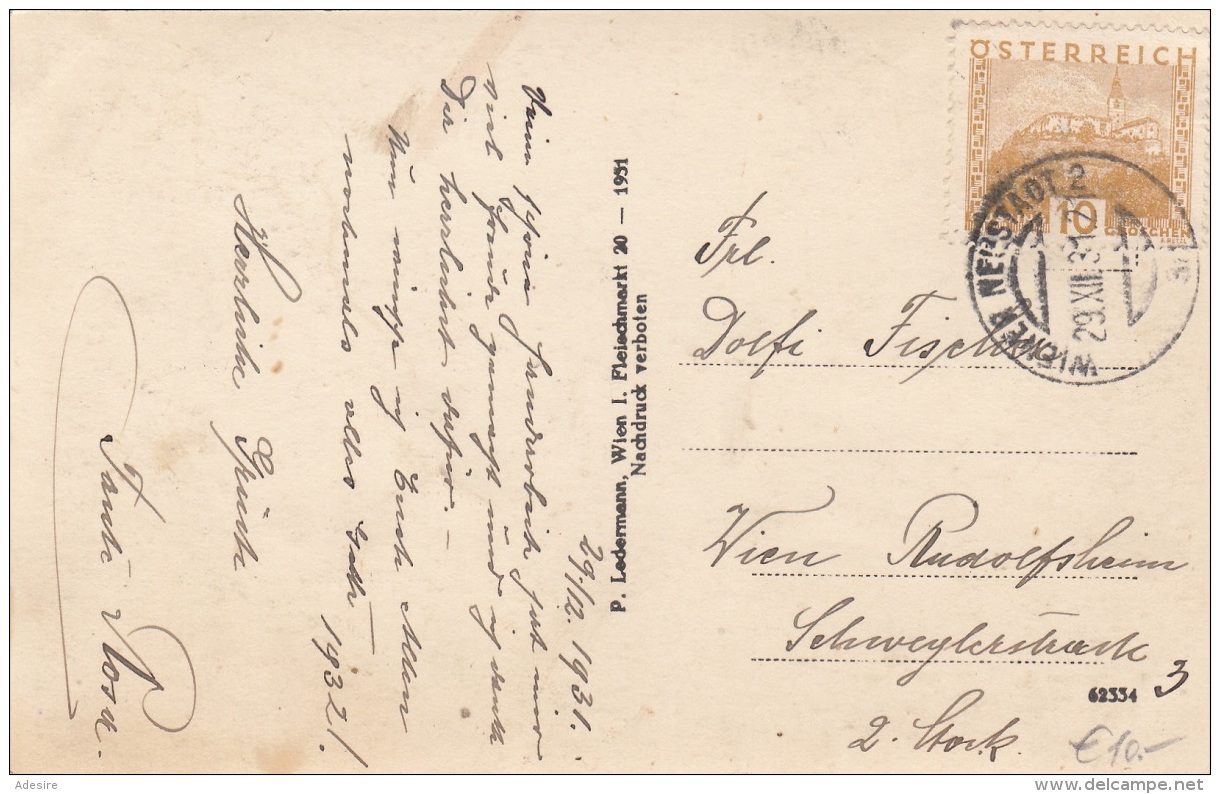 29./12. 1931.
Deine schöne Handarbeit hat mir
viel Freude gemacht und ich danke
Dir herzlichst dafür. –
Nun wünsche ich Euch Allen
nochmals alles Gute
1932!
Herzliche Grüße
Tante Rosa.
P. Ledermann, Wien I. Fleischmarkt 20 — 1931
Nachdruck verboten
ÖSTERREICH
10
GROSCHEN
WIENER NEUSTADT 2
29.XII.31
Frl.
Dolfi Fischer
Wien Rudolfsheim
Schweglerstraße
3
62334
2. Stock.
€10.-
Adesire
www.delcampe.net